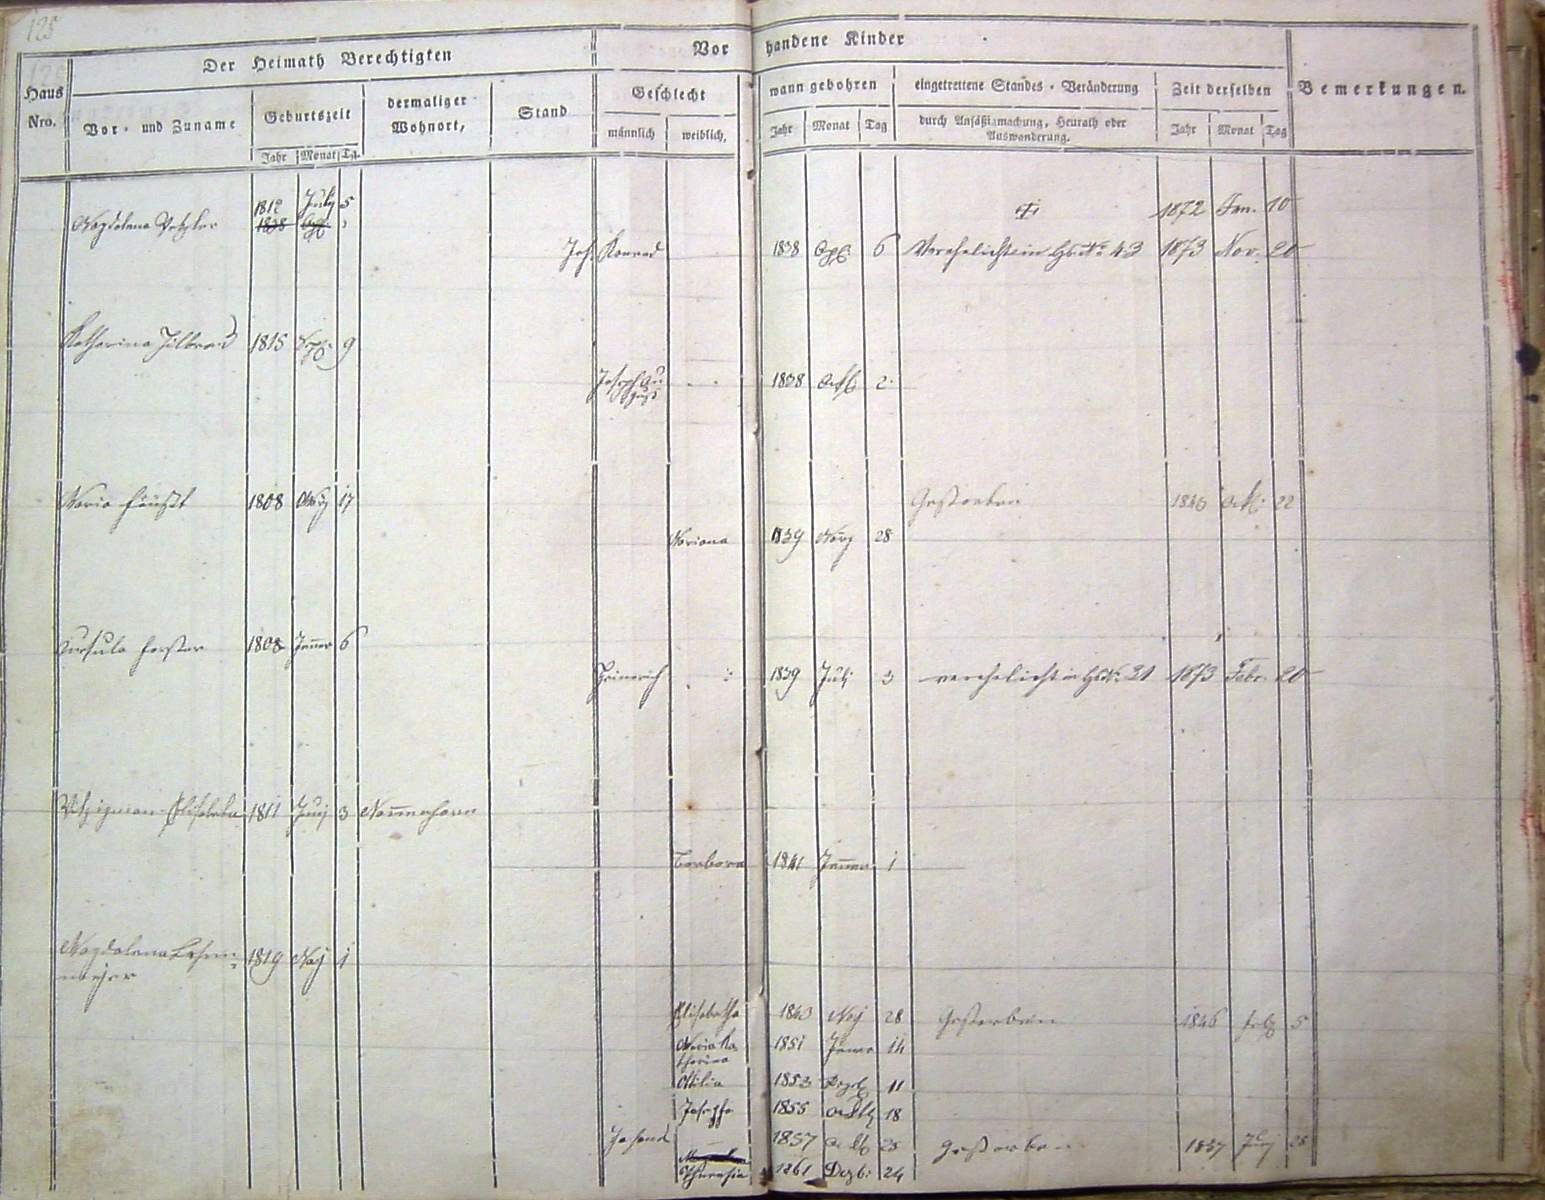 125
Der Heimath Berechtigten
Vorhandene Kinder
Haus Nro.
Vor- und Zuname
Geburtszeit
Jahr Monat Tg.
dermaliger Wohnort,
Stand
Geschlecht
männlich weiblich,
wann gebohren
Jahr Monat Tag
eingetrettene Standes-Veränderung
durch Ansäßigmachung, Heurath oder Auswanderung.
Zeit derselben
Jahr Monat Tag
Bemerkungen.
Magdalena 1812 July 5
1838
1872 Jan. 10
Joh. Konrad 1838 Sept. 6 Verehelicht in Hs. No. 43 1873 Nov. 20
Katharina Hilbrand 1815 Sept. 9
Joseph August 1838 Octb 2
Maria 1808 May 17 Gestorben 1845 Okt. 22
Mariana 1839 März 28
Ursula Forster 1808 Jenner 6
Heinrich 1839 Juli 3 verehelicht in Hs. No. 21 1873 Febr. 20
Elisabetha 1811 Juny 3
Barbara 1841 Jenner 1
Magdalena 1819 May 1
Elisabetha 1843 May 28 Gestorben 1846 5
Maria Katharina 1851 Jenner 14
Ottilia 1853 Dezb 11
Josepha 1855 Octb 18
Johann 1857 25 Gestorben 1857 25
Theresia 1861 Dezb: 24